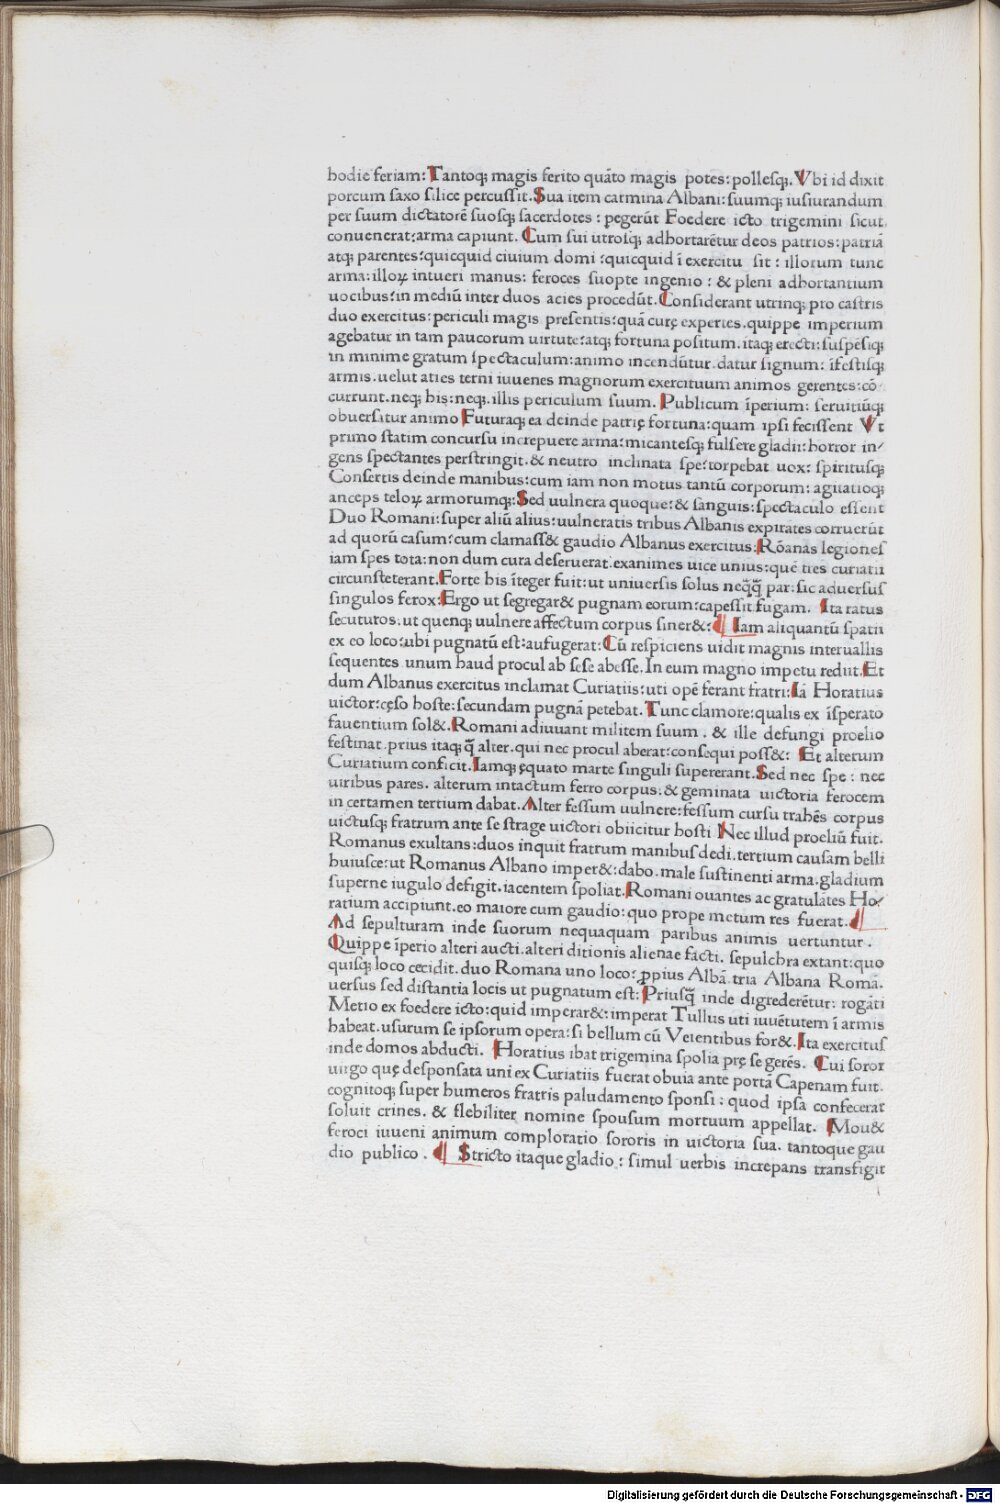 hodie feriam: Tantoq; magis ferito quāto magis potes: pollesq;. Vbi id dixit
porcum saxo silice percussit. Sua item carmina Albani: suumq; iusiurandum
per suum dictatorē suosq; sacerdotes: ꝑegerūt Foedere icto trigemini sicut
conuenerat: arma capiunt. Cum sui utrosq; adhortarētur deos patrios: patriā
atq; parentes: quicquid ciuium domi: quicquid ī exercitu sit: illorum tunc
arma: illoꝝ intueri manus: feroces suopte ingenio: & pleni adhortantium
uocibus: in mediū inter duos acies procedūt. Considerant utrinq; pro castris
duo exercitus: periculi magis presentis: quā curę expertes. quippe imperium
agebatur in tam paucorum uirtute: atq; fortuna positum. itaq; erecti: suspēsiq;
in minime gratum spectaculum: animo incendūtur. datur signum: īfestisq;
armis. uelut aties terni iuuenes magnorum exercituum animos gerentes: cō
currunt. neq; his: neq; illis periculum suum. Publicum īperium: seruitiūq;
obuersitur animo Futuraq; ea deinde patrię fortuna: quam ipsi fecissent Vt
primo statim concursu increpuere arma: micantesq; fulsere gladii: horror in⸗
gens spectantes perstringit. & neutro inclinata spe: torpebat uox: spiritusq;
Consertis deinde manibus: cum iam non motus tantū corporum: agitatioq;
anceps teloꝝ armorumq;: Sed uulnera quoque: & sanguis: spectaculo essent
Duo Romani: super aliū alius: uulneratis tribus Albanis expirātes corruerūt
ad quorū casum: cum clamass& gaudio Albanus exercitus: Rōanas legiones
iam spes tota: non dum cura deseruerat. exanimes uice unius: quē tres curiatii
circunsteterant. Forte his īteger fuit: ut uniuersis solus neq̄q̄ par: sic aduersus
singulos ferox: Ergo ut segregar& pugnam eorum: capessit fugam. Ita ratus
secuturos. ut quenq; uulnere affectum corpus siner&: Iam aliquantū spatii
ex eo loco: ubi pugnatū est: aufugerat: Cū respiciens uidit magnis interuallis
sequentes unum haud procul ab sese abesse. In eum magno impetu rediit. Et
dum Albanus exercitus inclamat Curiatiis: uti opē ferant fratri: Iā Horatius
uictor: cęso hoste: secundam pugnā petebat. Tunc clamore: qualis ex īsperato
fauentium sol&. Romani adiuuant militem suum. & ille defungi proelio
festinat. prius itaq; q̄ alter. qui nec procul aberat: consequi poss&: Et alterum
Curiatium conficit. Iamq; ęquato marte singuli supererant. Sed nec spe: nec
uiribus pares. alterum intactum ferro corpus: & geminata uictoria ferocem
in certamen tertium dabat. Alter fessum uulnere: fessum cursu trahēs corpus
uictusq; fratrum ante se strage uictori obiicitur hosti Nec illud proeliū fuit.
Romanus exultans: duos inquit fratrum manibus dedi. tertium causam belli
huiusce: ut Romanus Albano imper&: dabo. male sustinenti arma: gladium
superne iugulo defigit. iacentem spoliat. Romani ouantes ac gratulātes Ho⸗
ratium accipiunt. eo maiore cum gaudio: quo prope metum res fuerat.
Ad sepulturam inde suorum nequaquam paribus animis uertuntur.
Quippe īperio alteri aucti. alteri ditionis alienae facti. sepulchra extant: quo
quisq; loco cecidit. duo Romana uno loco: ꝓpius Albā. tria Albana Romā.
uersus sed distantia locis ut pugnatum est: Priusq̄ inde digrederētur: rogāti
Metio ex foedere icto: quid imperar&: imperat Tullus uti iuuētutem ī armis
habeat. usurum se ipsorum opera: si bellum cū Veientibus for&. Ita exercitus
inde domos abducti. Horatius ibat trigemina spolia prę se gerēs. Cui soror
uirgo quę desponsata uni ex Curiatiis fuerat obuia ante portā Capenam fuit.
cognitoq; super humeros fratris paludamento sponsi: quod ipsa confecerat
soluit crines. & flebiliter nomine spousum mortuum appellat. Mou&
feroci iuueni animum comploratio sororis in uictoria sua. tantoque gau
dio publico. Stricto itaque gladio: simul uerbis increpans transfigit
Digitalisierung gefördert durch die Deutsche Forschungsgemeinschaft - DFG